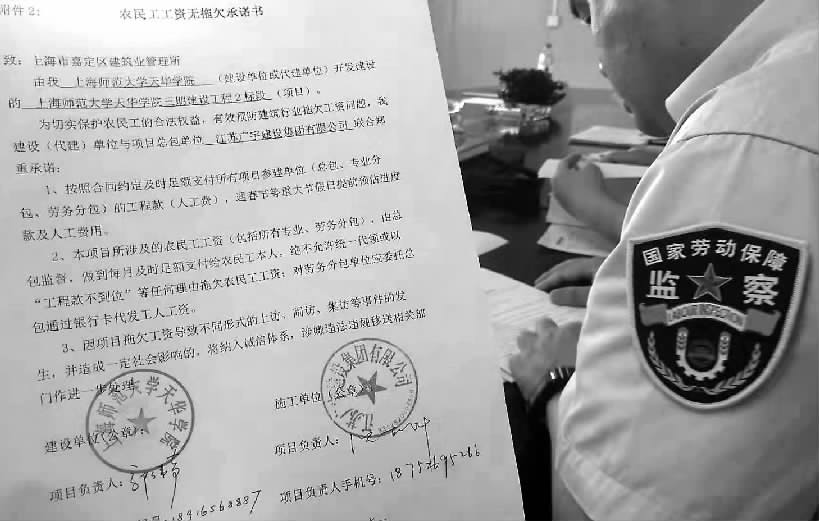 附件2：
农民工工资无拖欠承诺书
致：上海市嘉定区建筑业管理所
由我 上海师范大学天华学院 （建设单位或代建单位）开发建设
的 上海师范大学天华学院三期建设工程2标段 （项目）。
为切实保护农民工的合法权益，有效预防建筑行业拖欠工资问题，我
建设（代建）单位与项目总包单位 江苏广宇建设集团有限公司 联合郑
重承诺：
1、按照合同约定及时足额支付所有项目参建单位（总包、专业分
包、劳务分包）的工程款（人工费），逢春节等重大节假日提前预估进度
款及人工费用。
2、本项目所涉及的农民工工资（包括所有专业、劳务分包），由总
包监督，做到每月及时足额支付给农民工本人，绝不允许统一代领或以
“工程款不到位”等任何理由拖欠农民工工资；对劳务分包单位应委托总
包通过银行卡代发工人工资。
3、因项目拖欠工资导致不同形式的上访、闹访、集访等事件的发
生，并造成一定社会影响的，将纳入诚信体系，涉嫌违法违规移送相关部
门作进一步处理。
建设单位（公章）：
施工单位（公章）
上海师范大学天华学院
建设集团有限公司
项目负责人：
项目负责人：
项目负责人手机号：
国家劳动保障
监察
LABOUR INSPECTION